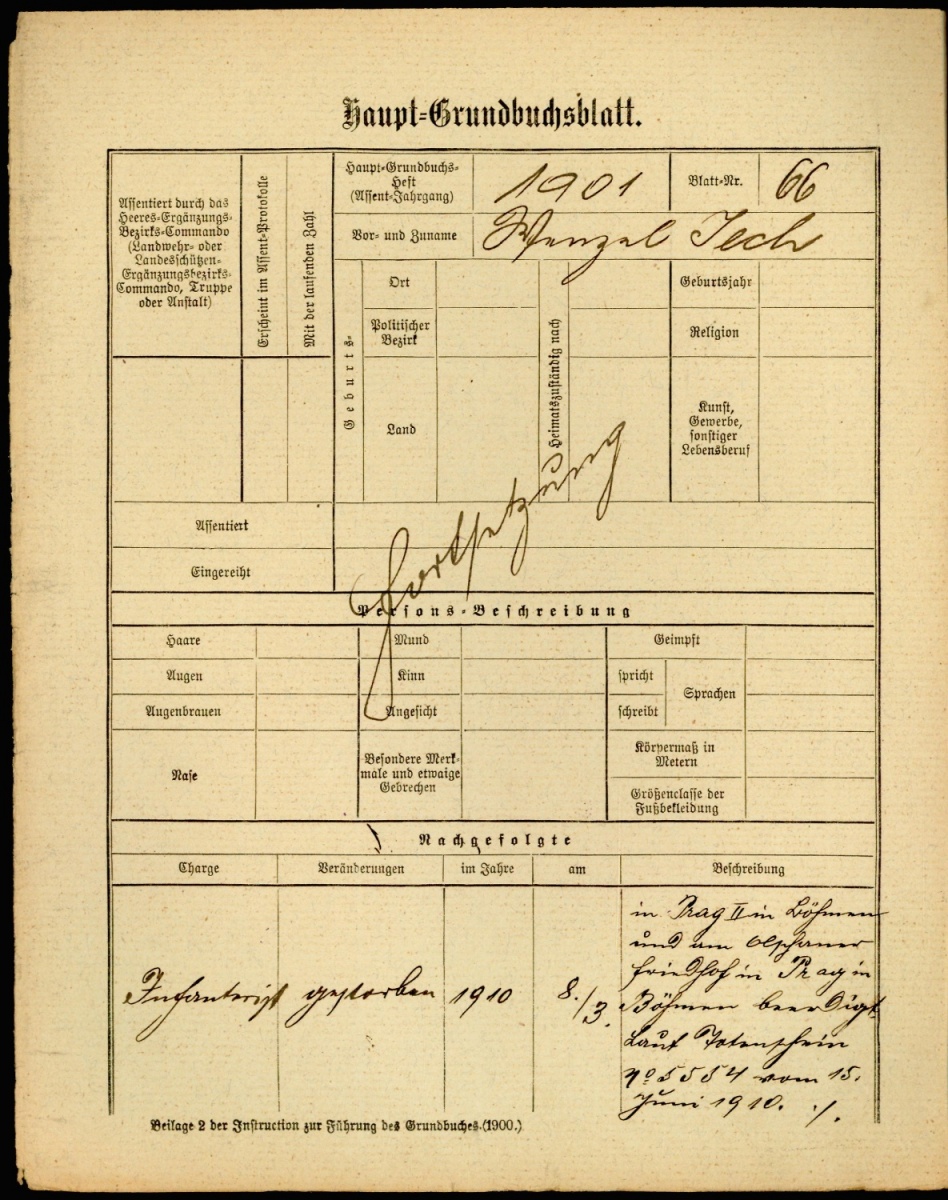 Haupt-Grundbuchsblatt.
Assentiert durch das
Heeres-Ergänzungs-
Bezirks-Commando
(Landwehr- oder
Landesschützen-
Ergänzungsbezirks-
Commando, Truppe
oder Anstalt)
Erscheint im Assent-Protokolle
Mit der laufenden Zahl
Haupt-Grundbuchs-
Heft
(Assent-Jahrgang)
1901
Blatt-Nr.
66
Vor- und Zuname
Wenzel Jech
Geburts-
Ort
Politischer
Bezirk
Land
Heimatszuständig nach
Geburtsjahr
Religion
Kunst,
Gewerbe,
sonstiger
Lebensberuf
Assentiert
Eingereiht
Fortsetzung
Persons-Beschreibung
Haare
Mund
Geimpft
Augen
Kinn
spricht
Sprachen
Augenbrauen
Angesicht
schreibt
Nase
Besondere Merk-
male und etwaige
Gebrechen
Körpermaß in
Metern
Größenclasse der
Fußbekleidung
Nachgefolgte
Charge
Veränderungen
im Jahre
am
Beschreibung
Infanterist
gestorben
1910
8./3.
in Prag II in Böhmen
und am Olschaner
Friedhof in Prag in
Böhmen beerdigt
Laut Totenschein
No 5554 vom 15.
Juni 1910. ./.
Beilage 2 der Instruction zur Führung des Grundbuches. (1900.)